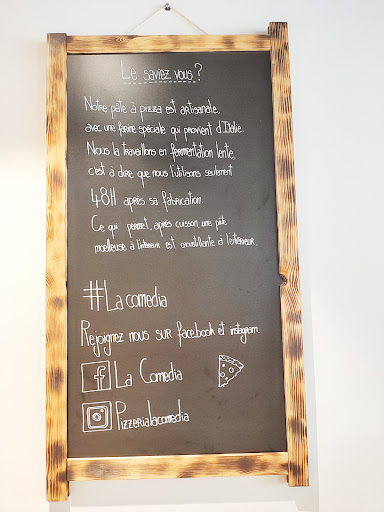 Le saviez vous ?
Notre pâte à pizza est artisanale,
avec une farine spéciale qui provient d'Italie.
Nous la travaillons en fermentation lente,
c'est à dire que nous l'utilisons seulement
48H après sa fabrication
Ce qui permet, après cuisson, une pâte
moelleuse à l'intérieur est croustillante à l'éxterieur.
#La comedia
Rejoignez nous sur facebook et instagram
f La Comedia
Pizzerialacomedia